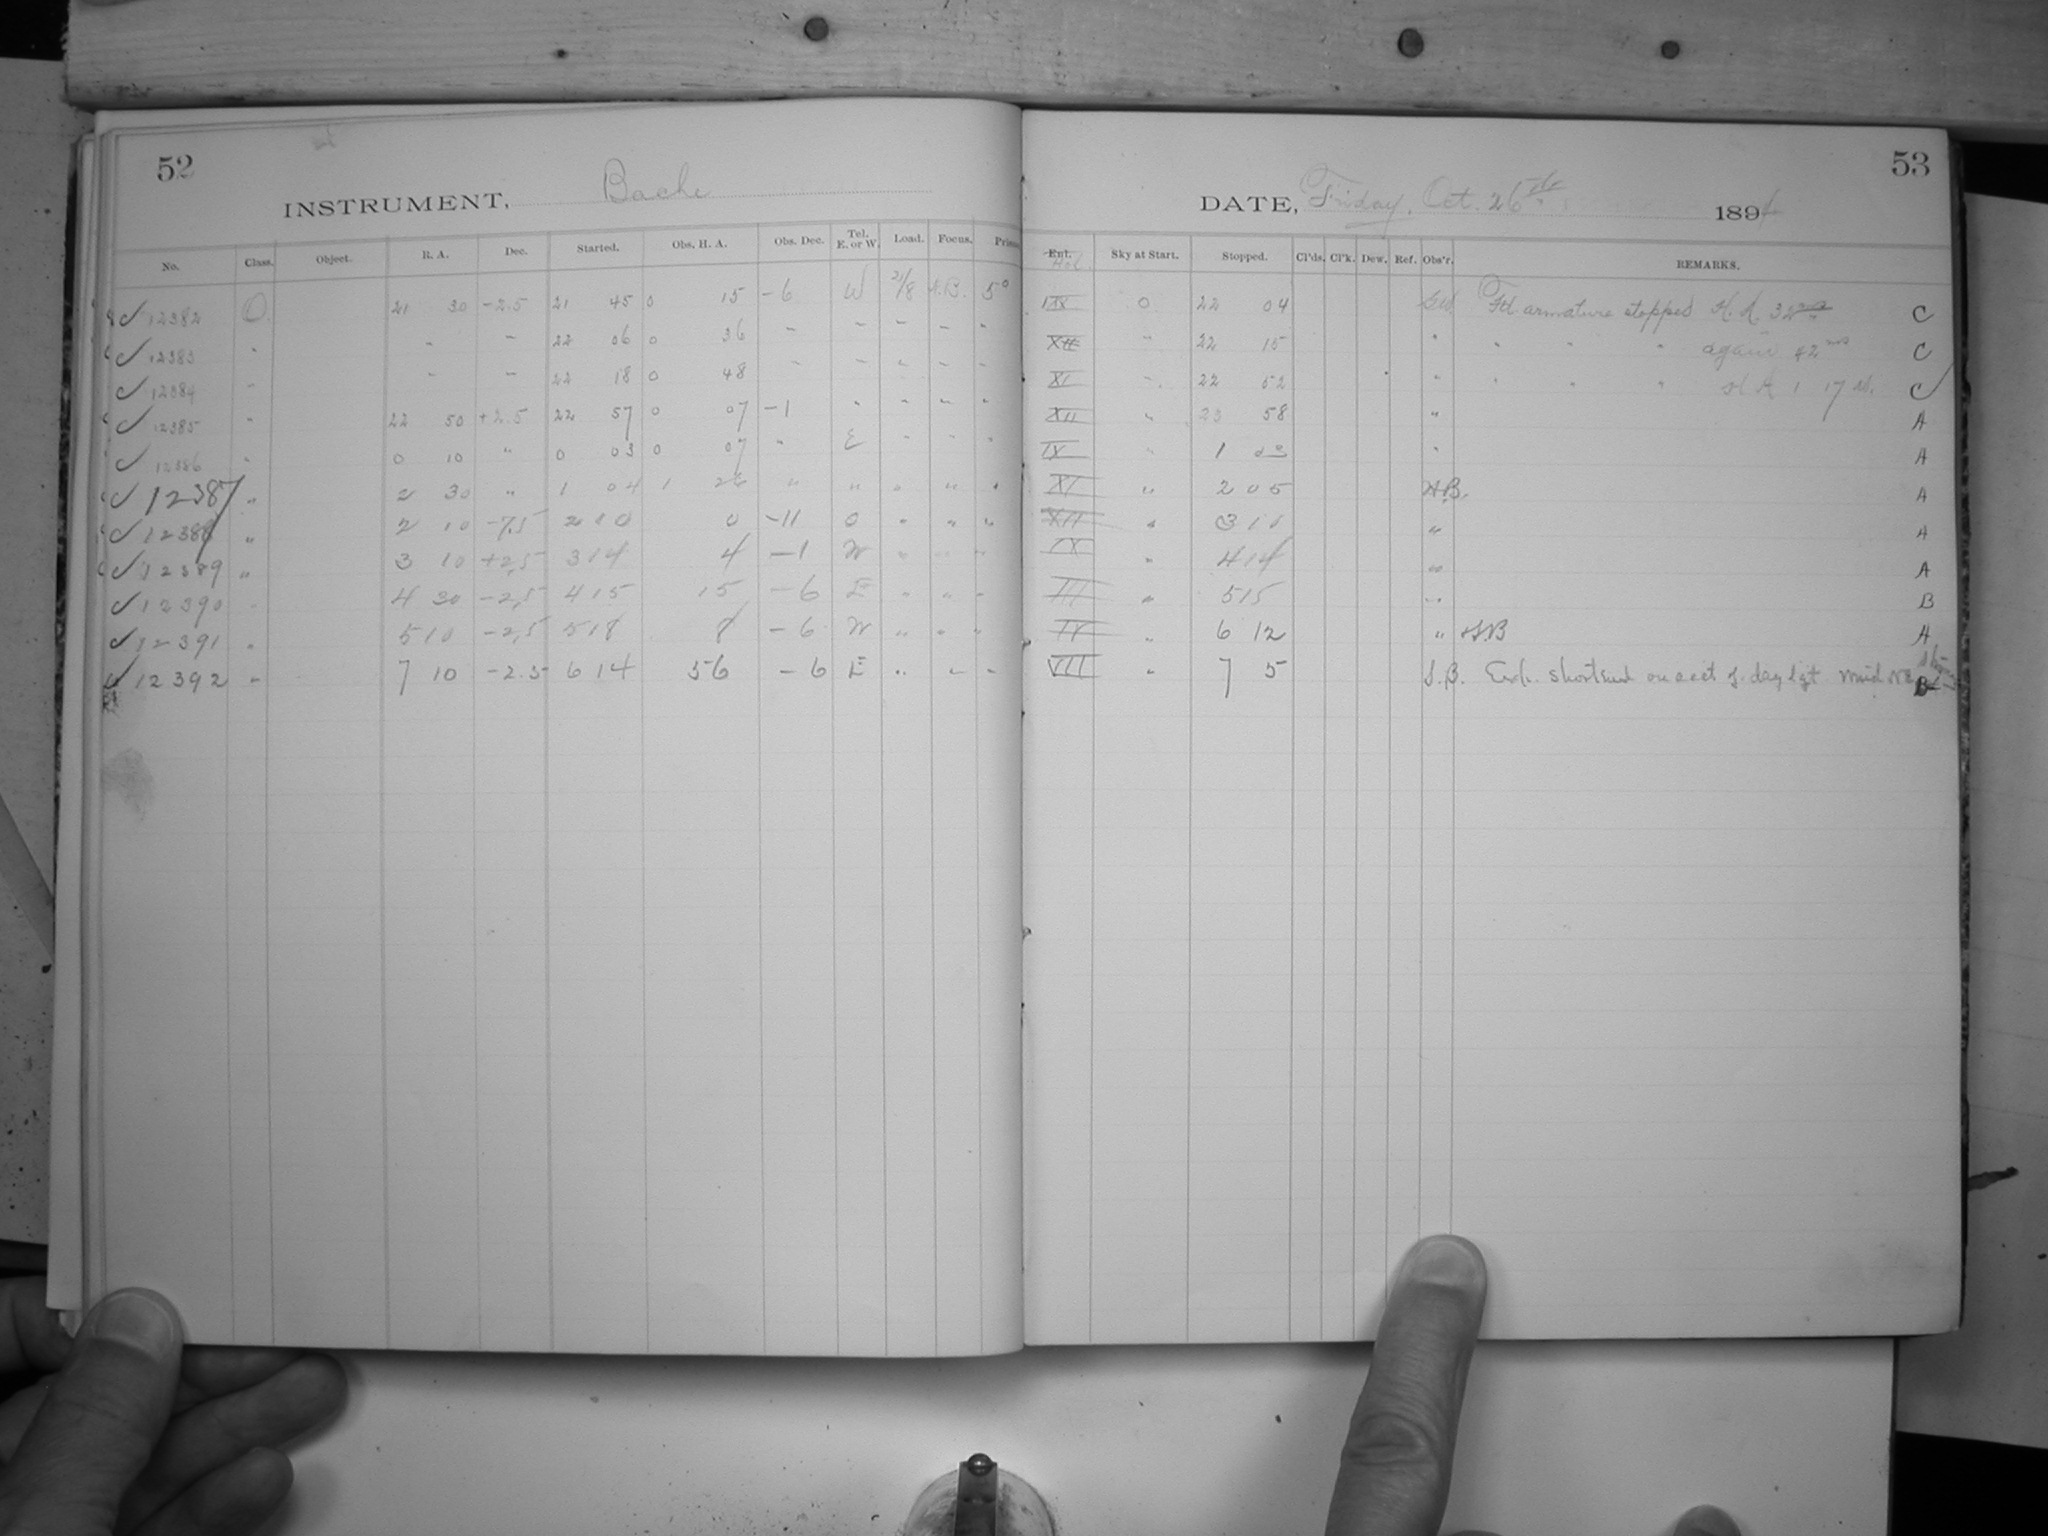 52
INSTRUMENT, Bache
No. Class. Object. R. A. Dec. Started. Obs. H. A. Obs. Dec. Tel. E. or W. Load. Focus.
12382 O 21 30 -2.5 21 45 0 15 -6 W 5°
12383 " " " 22 06 0 36 " " " " "
12384 " " " 22 18 0 48 " " " " "
12385 " 22 50 +2.5 22 57 0 07 -1 " " " "
12386 " 0 10 " 0 03 0 07 " E " " "
12387 " 2 30 " 1 04 1 26 " " " " "
12388 " 2 10 -7.5 2 10 0 -11 O " " "
12389 " 3 10 +2.5 3 14 4 -1 W " " "
12390 " 4 30 -2.5 4 15 15 -6 E " " "
12391 " 5 10 -2.5 5 18 8 -6 W " " "
12392 " 7 10 -2.5 6 14 56 -6 E " " "
53
DATE, Friday, Oct. 26th 1894
Ent. Sky at Start. Stopped. Cl'ds. Cl'k. Dew. Ref. Obs'r. REMARKS.
O 22 04 armature stopped H. A. C
XII " 22 15 " " " " again 42 C
XI " 22 52 " " " " H A 1 17 C
XII " 23 58 " A
IX " 1 " A
XI " 2 05 A.B. A
XII " 3 10 " A
IX " 4 14 " A
III " 5 15 " B
IX " 6 12 " A
VIII " 7 5 S.B. shortened on acct of daylgt B